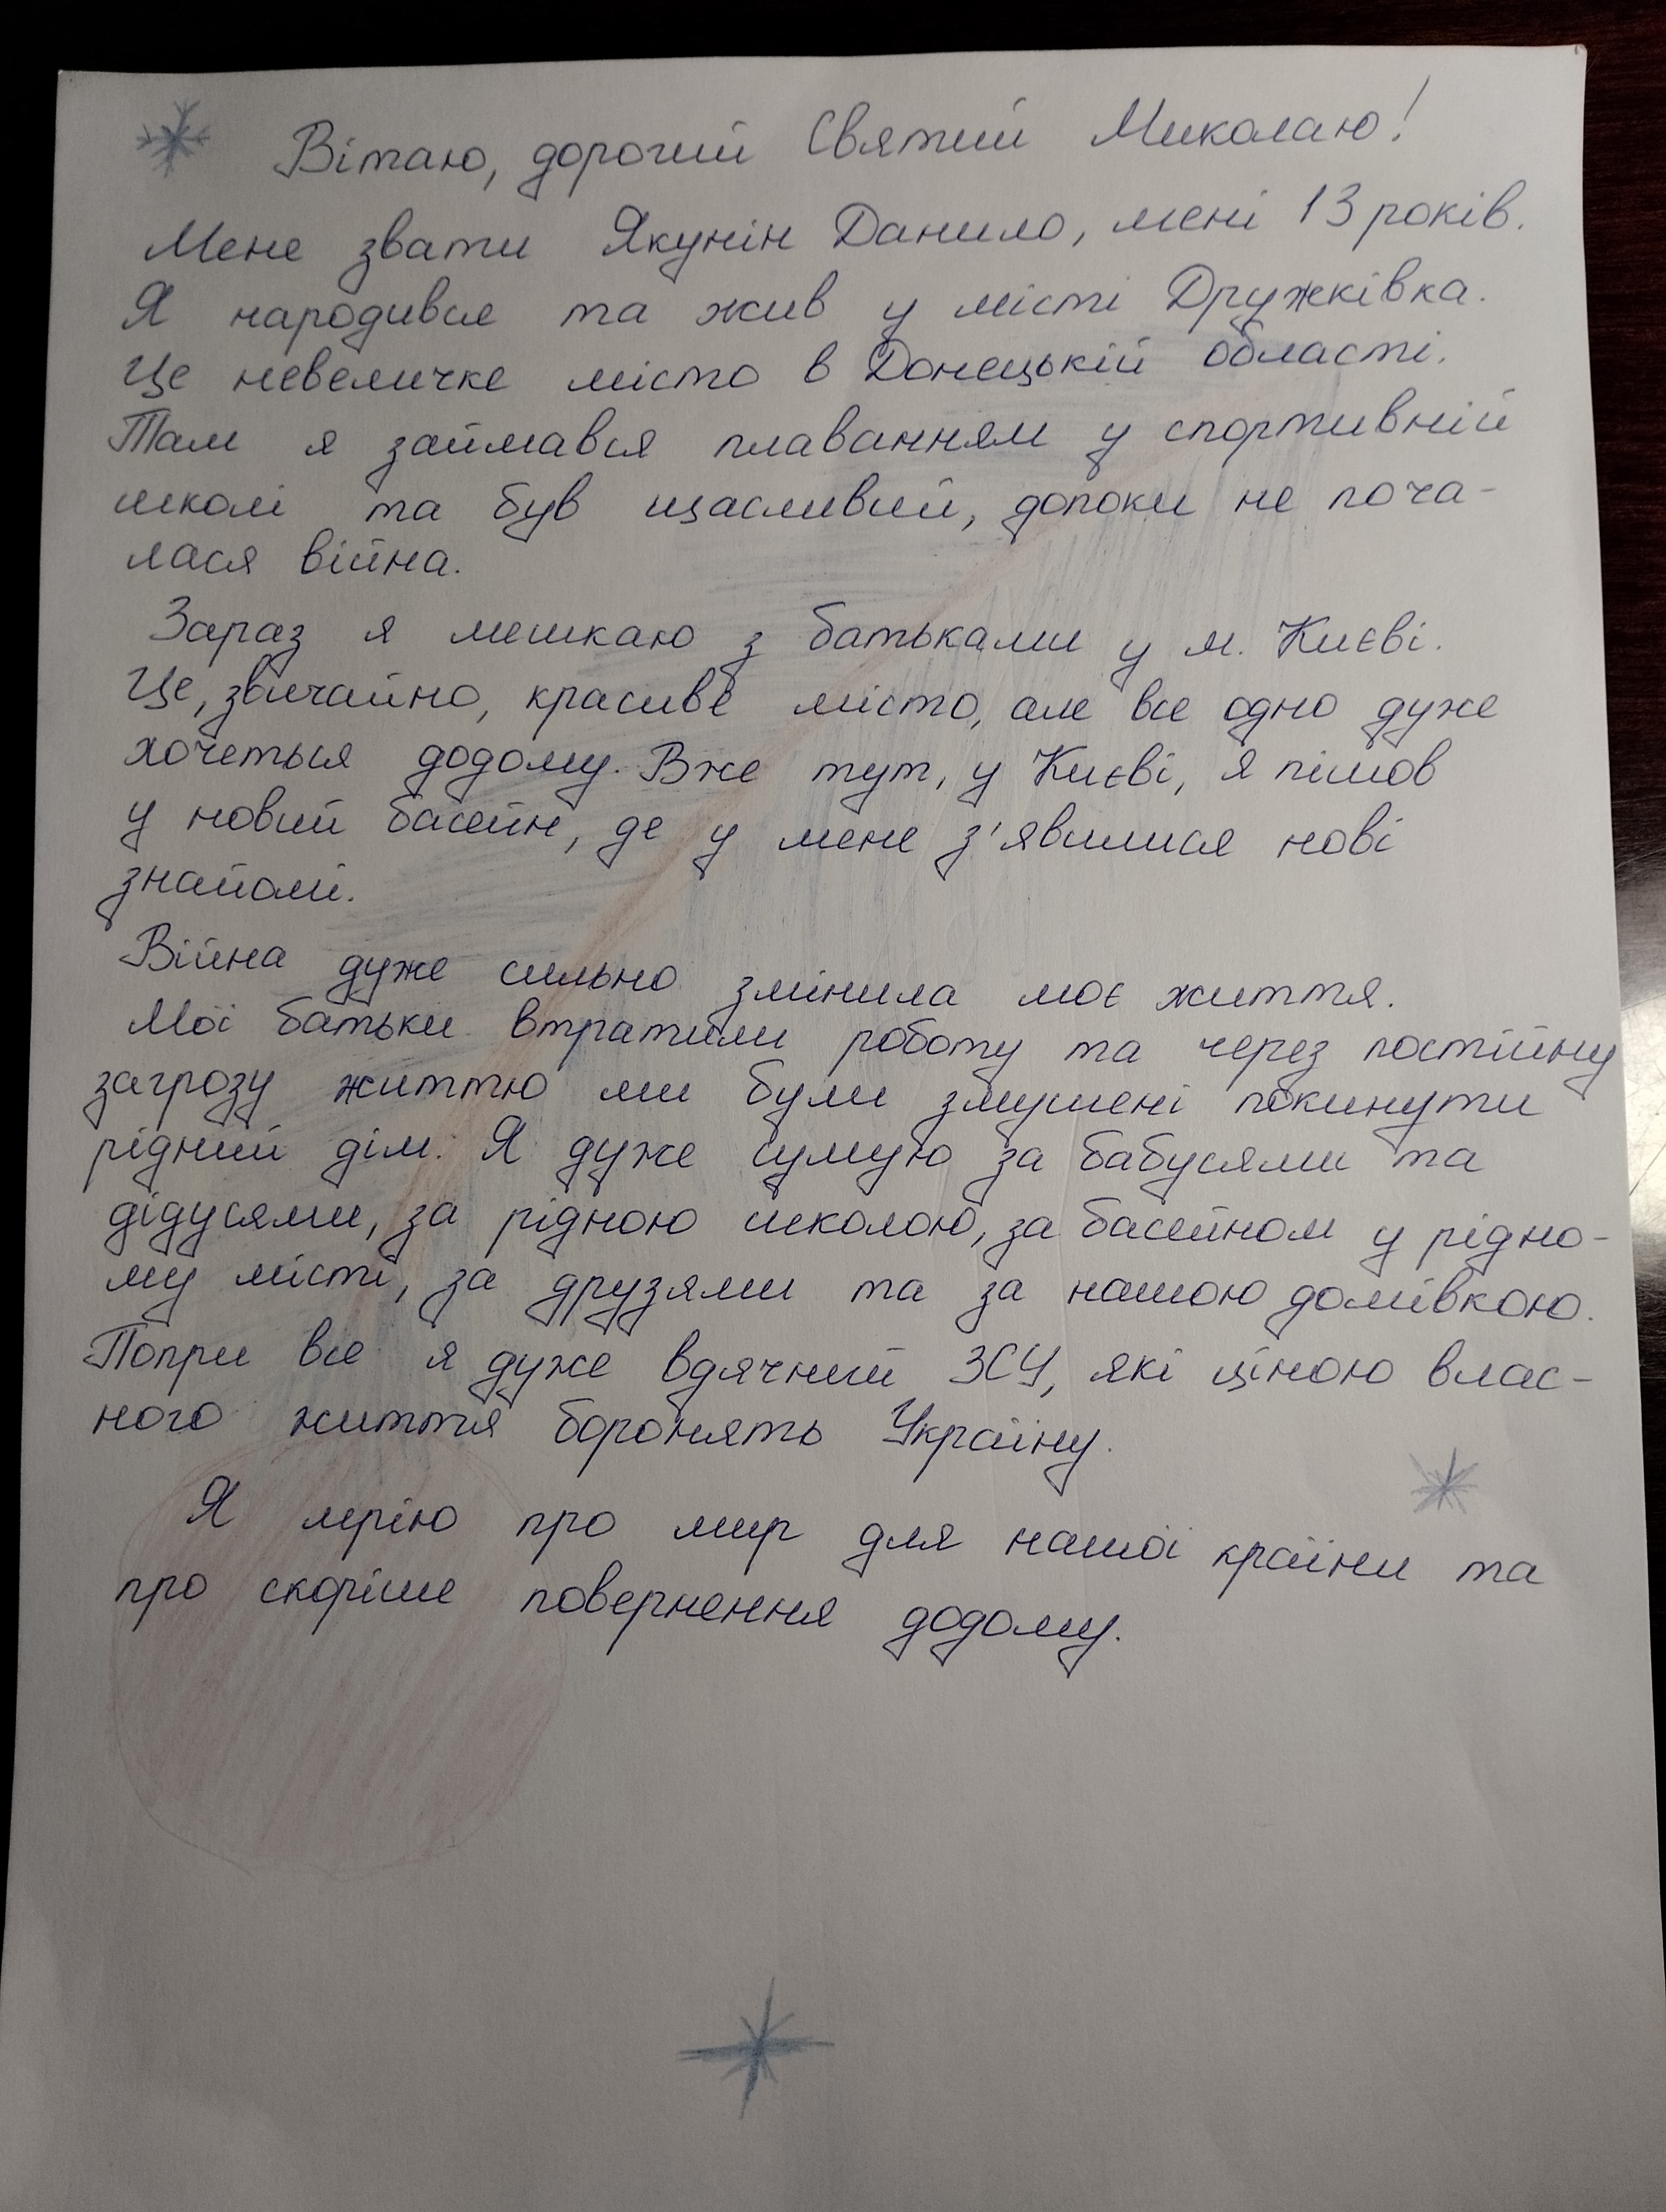 Вітаю, дорогий Святий Миколаю!
Мене звати Якунін Данило, мені 13 років.
Я народився та жив у місті Дружківка.
Це невеличке місто в Донецькій області.
Там я займався плаванням у спортивній
школі та був щасливий, допоки не поча-
лася війна.
Зараз я мешкаю з батьками у м. Києві.
Це, звичайно, красиве місто, але все одно дуже
хочеться додому. Вже тут, у Києві, я пішов
у новий басейн, де у мене з'явилися нові
знайомі.
Війна дуже сильно змінила моє життя.
Мої батьки втратили роботу та через постійну
загрозу життю ми були змушені покинути
рідний дім. Я дуже сумую за бабусями та
дідусями, за рідною школою, за басейном у рідно-
му місті, за друзями та за нашою домівкою.
Попри все я дуже вдячний ЗСУ, які ціною влас-
ного життя боронять Україну.
Я мрію про мир для нашої країни та
про скоріше повернення додому.